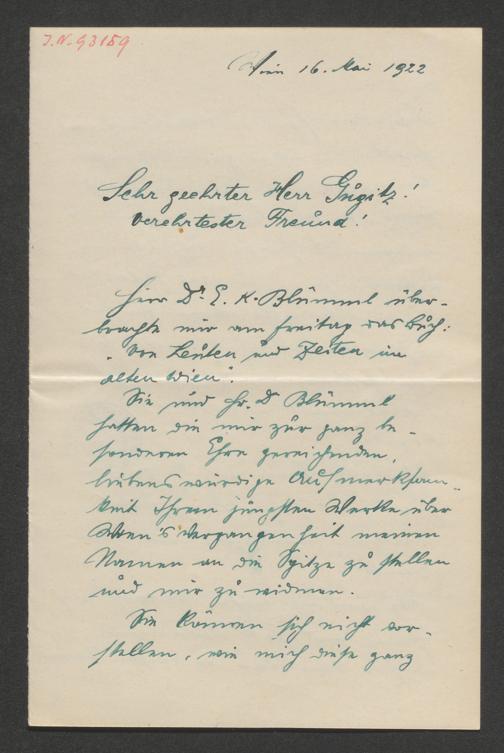 J.N. 93159
Wien 16. Mai 1922
Sehr geehrter Herr Gugitz!
Verehrtester Freund!
Herr Dr. E. K. Blümml über-
brachte mir am Freitag das Buch:
"Von Leuten und Zeiten im
alten Wien".
Sie und Hr. Dr Blümml
hatten die mir zur ganz be-
sonderen Ehre gereichenden,
liebenswürdige Aufmerksam-
keit Ihrem jüngsten Werke über
Wien's Vergangenheit meinen
Namen an die Spitze zu stellen
und mir zu widmen.
Sie können sich nicht vor-
stellen, wie mich diese ganz